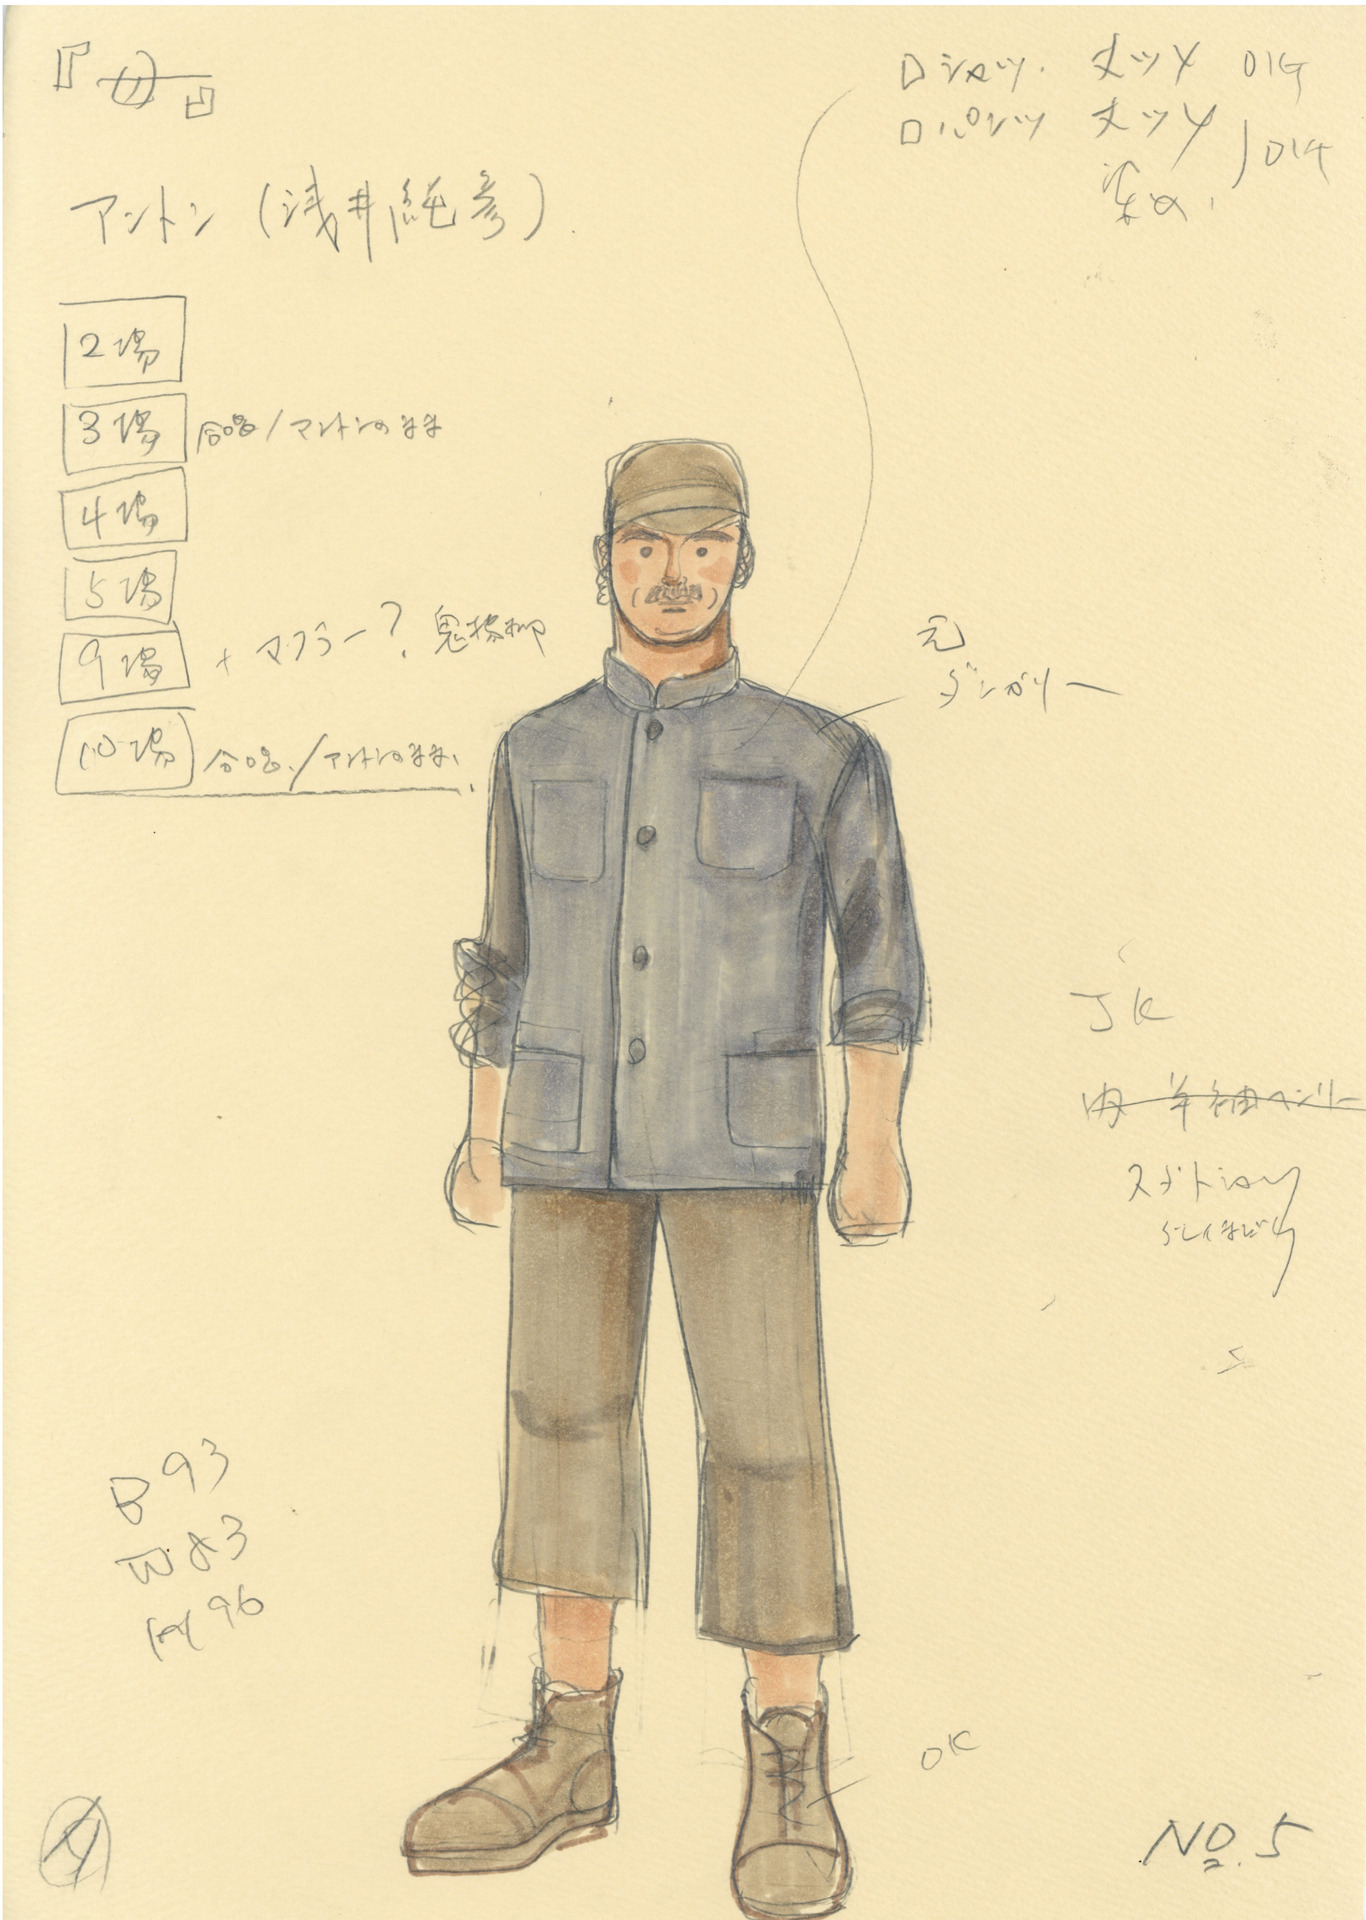 『母』
アントン (浅井純彦)
□シャツ. 丈ツメ DIG
□パンツ 丈ツメ
染め. DIG
2場
3場 合唱/アントンのまま
4場
5場
9場 + マフラー?
10場 合唱/アントンのまま.
元
ダンガリー
JK
内 半袖ヘンリー
B 93
W 83
H 96
OK
NO.5